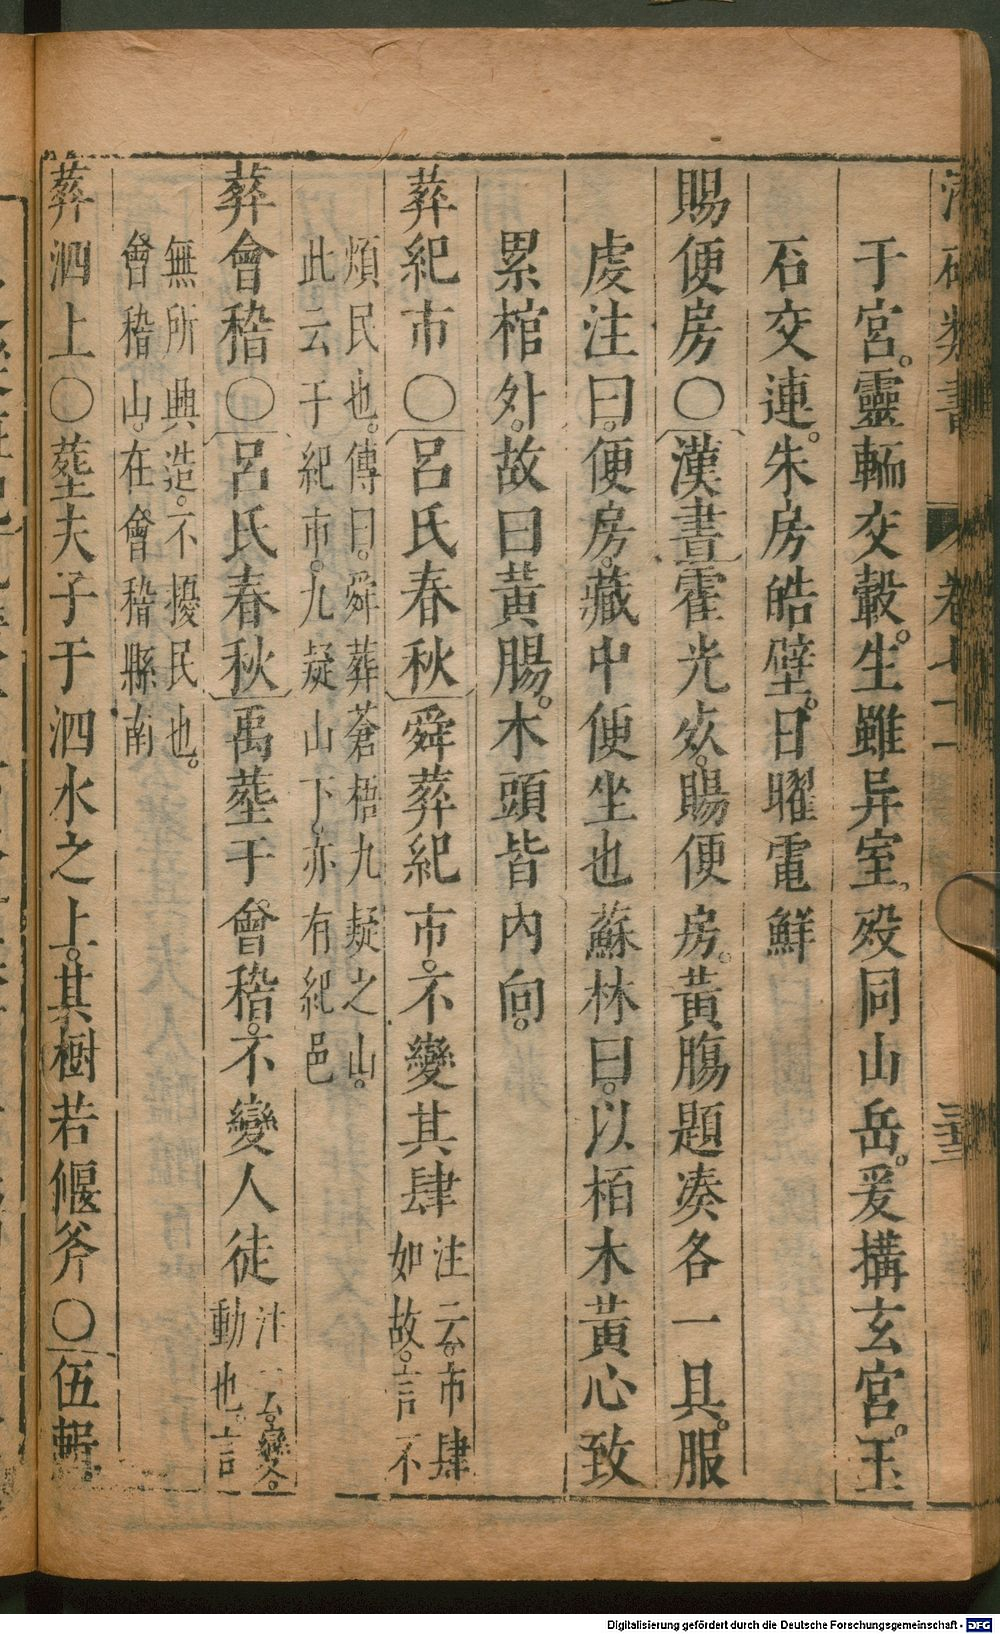 類書 卷七十一
于宮。靈輀交轂。生雖异室。殁同山岳。爰搆玄宮。玉
石交連。朱房皓壁。日曜電鮮
賜便房〇漢書霍光㱙。賜便房。黃膓題凑各一具。服
虔注曰。便房。藏中便坐也蘇林曰。以栢木黃心致
累棺外。故曰黃腸。木頭皆內向。
葬紀市〇呂氏春秋舜葬紀市。不變其肆注云。市肆如故。言不
煩民也。傳曰。舜葬蒼梧九疑之山。
此云于紀市。九疑山下。亦有紀邑
葬會稽〇呂氏春秋禹塟于會稽。不變人徒注云。變
動也。言
無所興造。不擾民也。
會稽山。在會稽縣南
葬泗上〇塟夫子于泗水之上。其樹若偃斧〇伍輯。
Digitalisierung gefördert durch die Deutsche Forschungsgemeinschaft - DFG